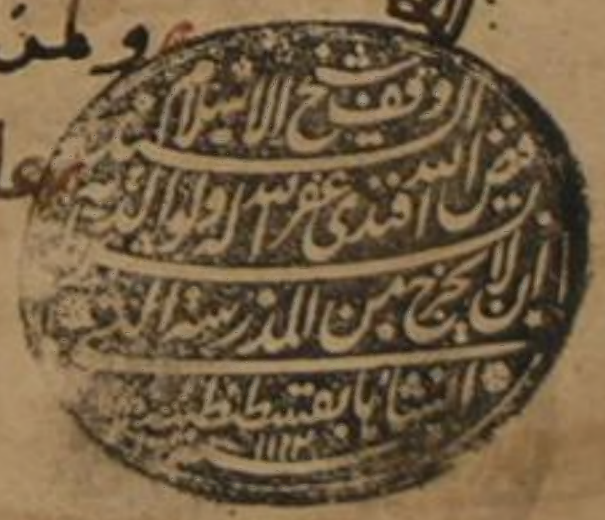 ولمن
وقف شيخ الاسلام السيد
فيض الله افندى غفر الله له ولوالديه
بشرط ان لا يخرج من المدرسة التى
انشاها بقسطنطينية